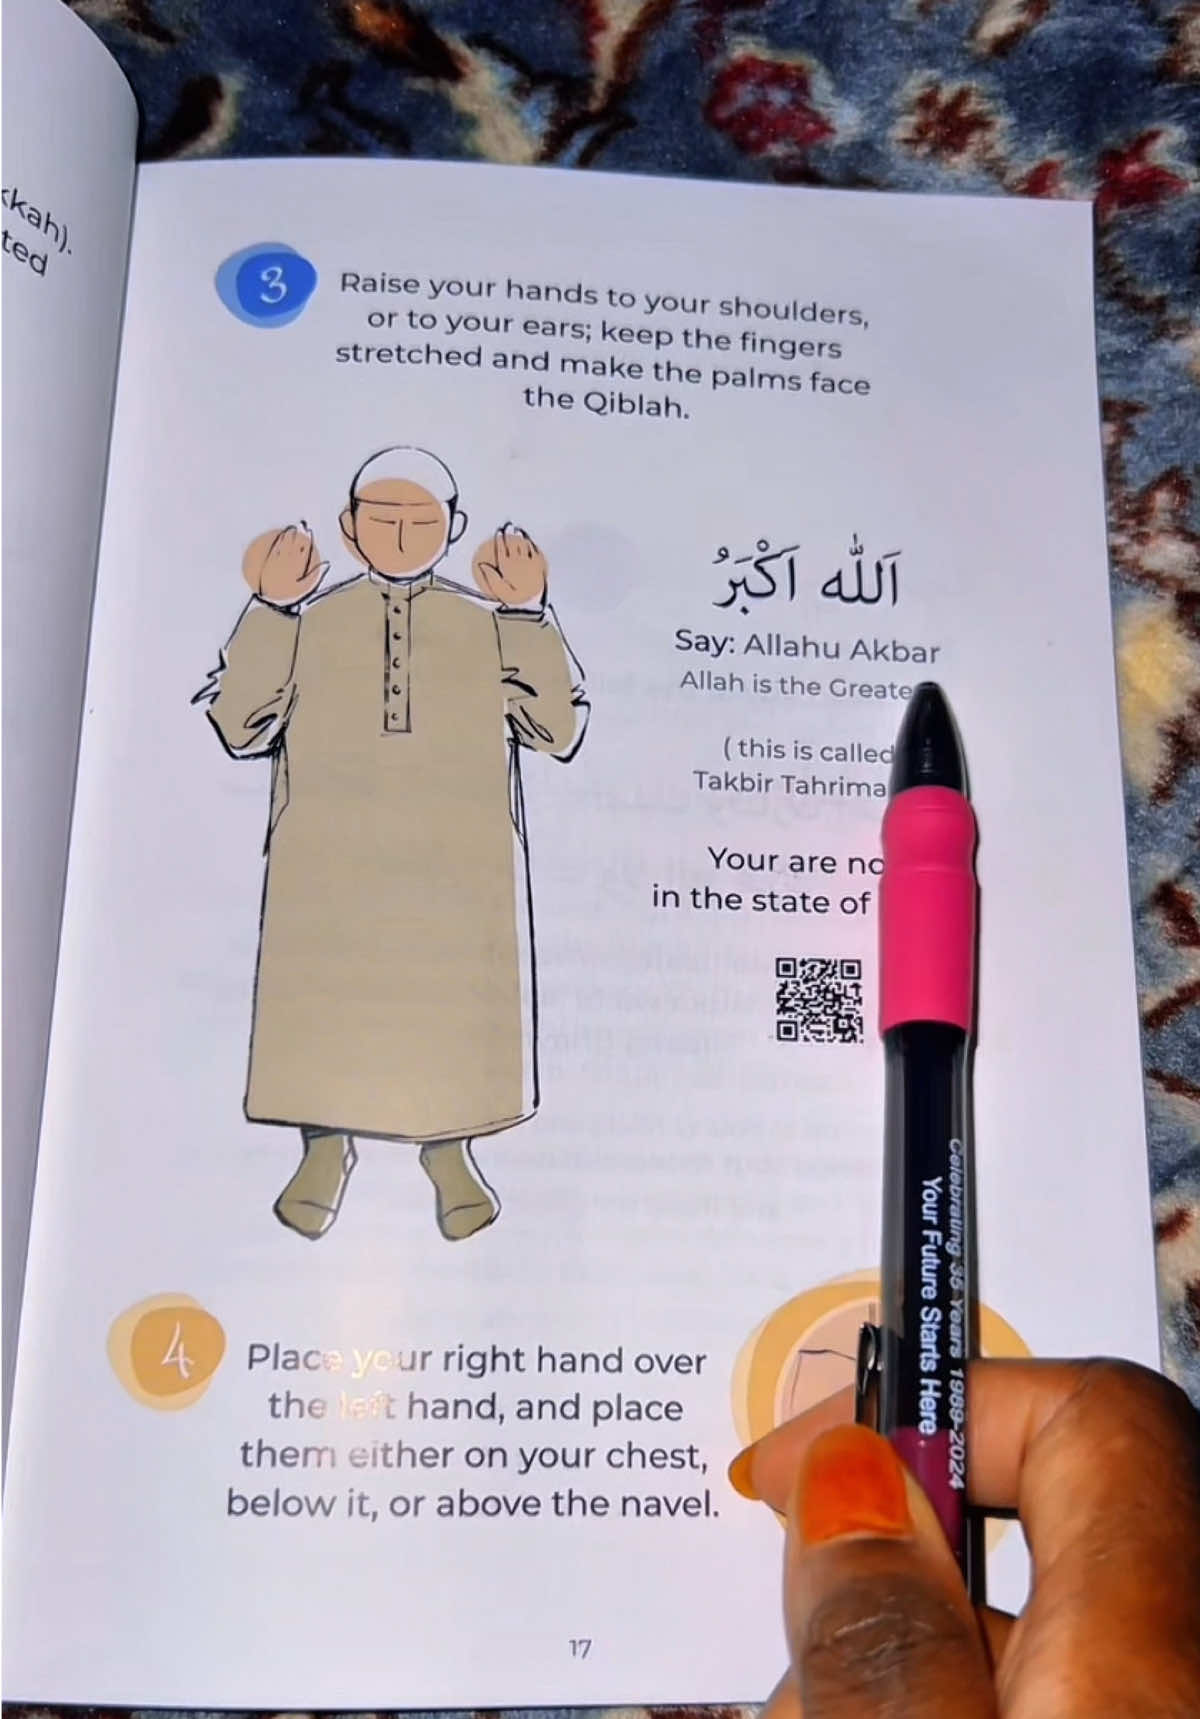 kkah).
ted
3
Raise your hands to your shoulders,
or to your ears; keep the fingers
stretched and make the palms face
the Qiblah.
اَللّٰه اَكْبَرُ
Say: Allahu Akbar
Allah is the Greate
( this is called
Takbir Tahrima
Your are no
in the state of
4
Place your right hand over
the left hand, and place
them either on your chest,
below it, or above the navel.
17
Celebrating 35 Years 1989-2024
Your Future Starts Here.